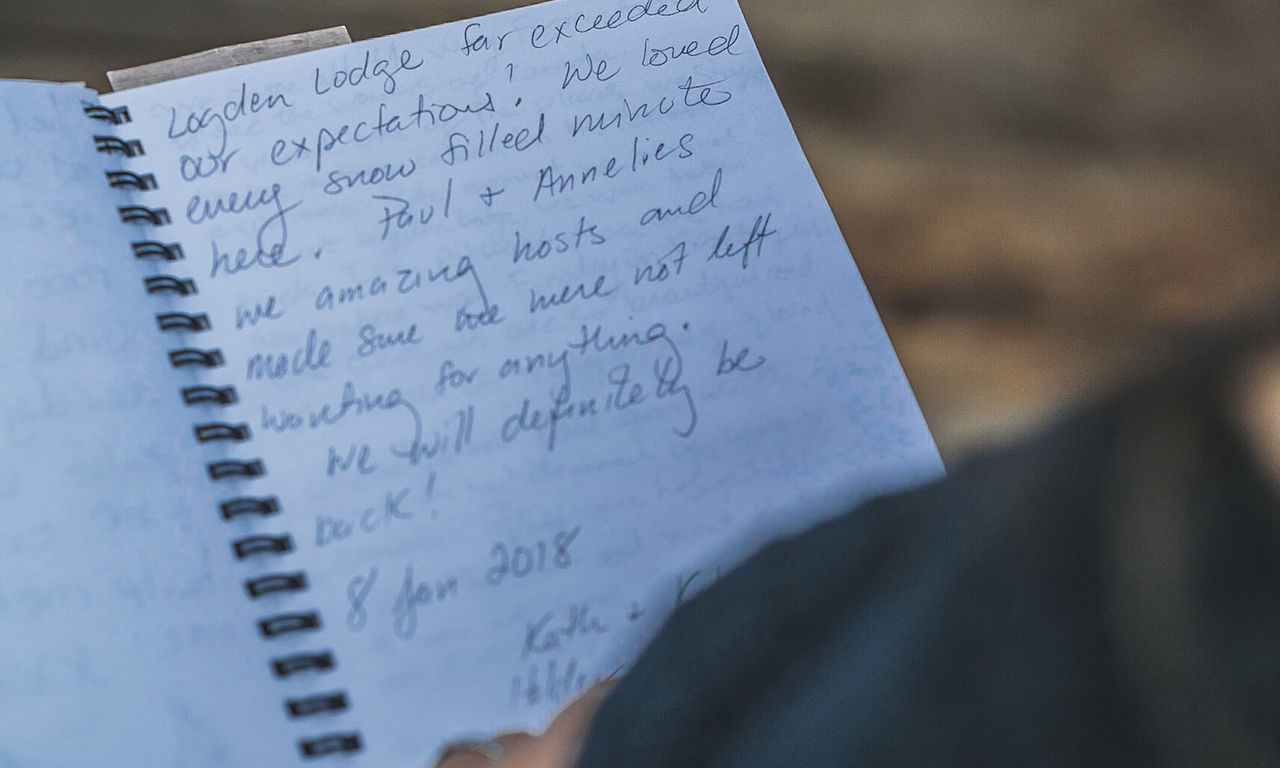 Logden Lodge far exceeded
our expectations! We loved
every snow filled minute
here. Paul + Annelies
we amazing hosts and
made sure we were not left
wanting for anything.
We will definitely be
back!
8 Jan 2018
Kath +